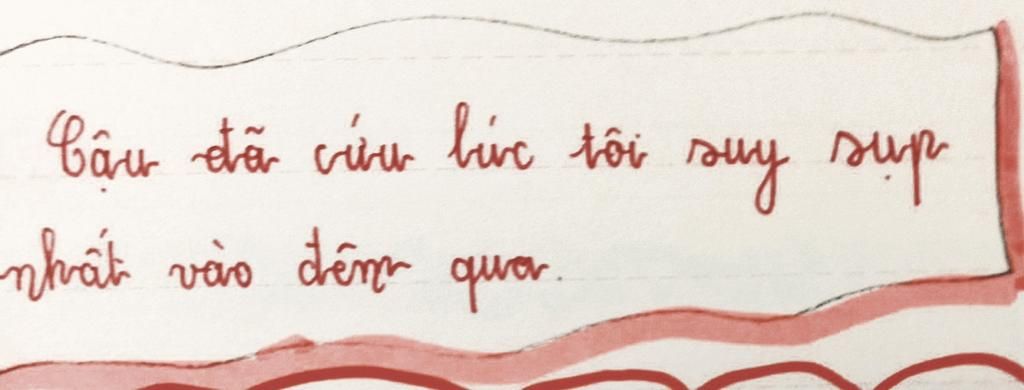 Cậu đã cứu lúc tôi suy sụp
nhất vào đêm qua.